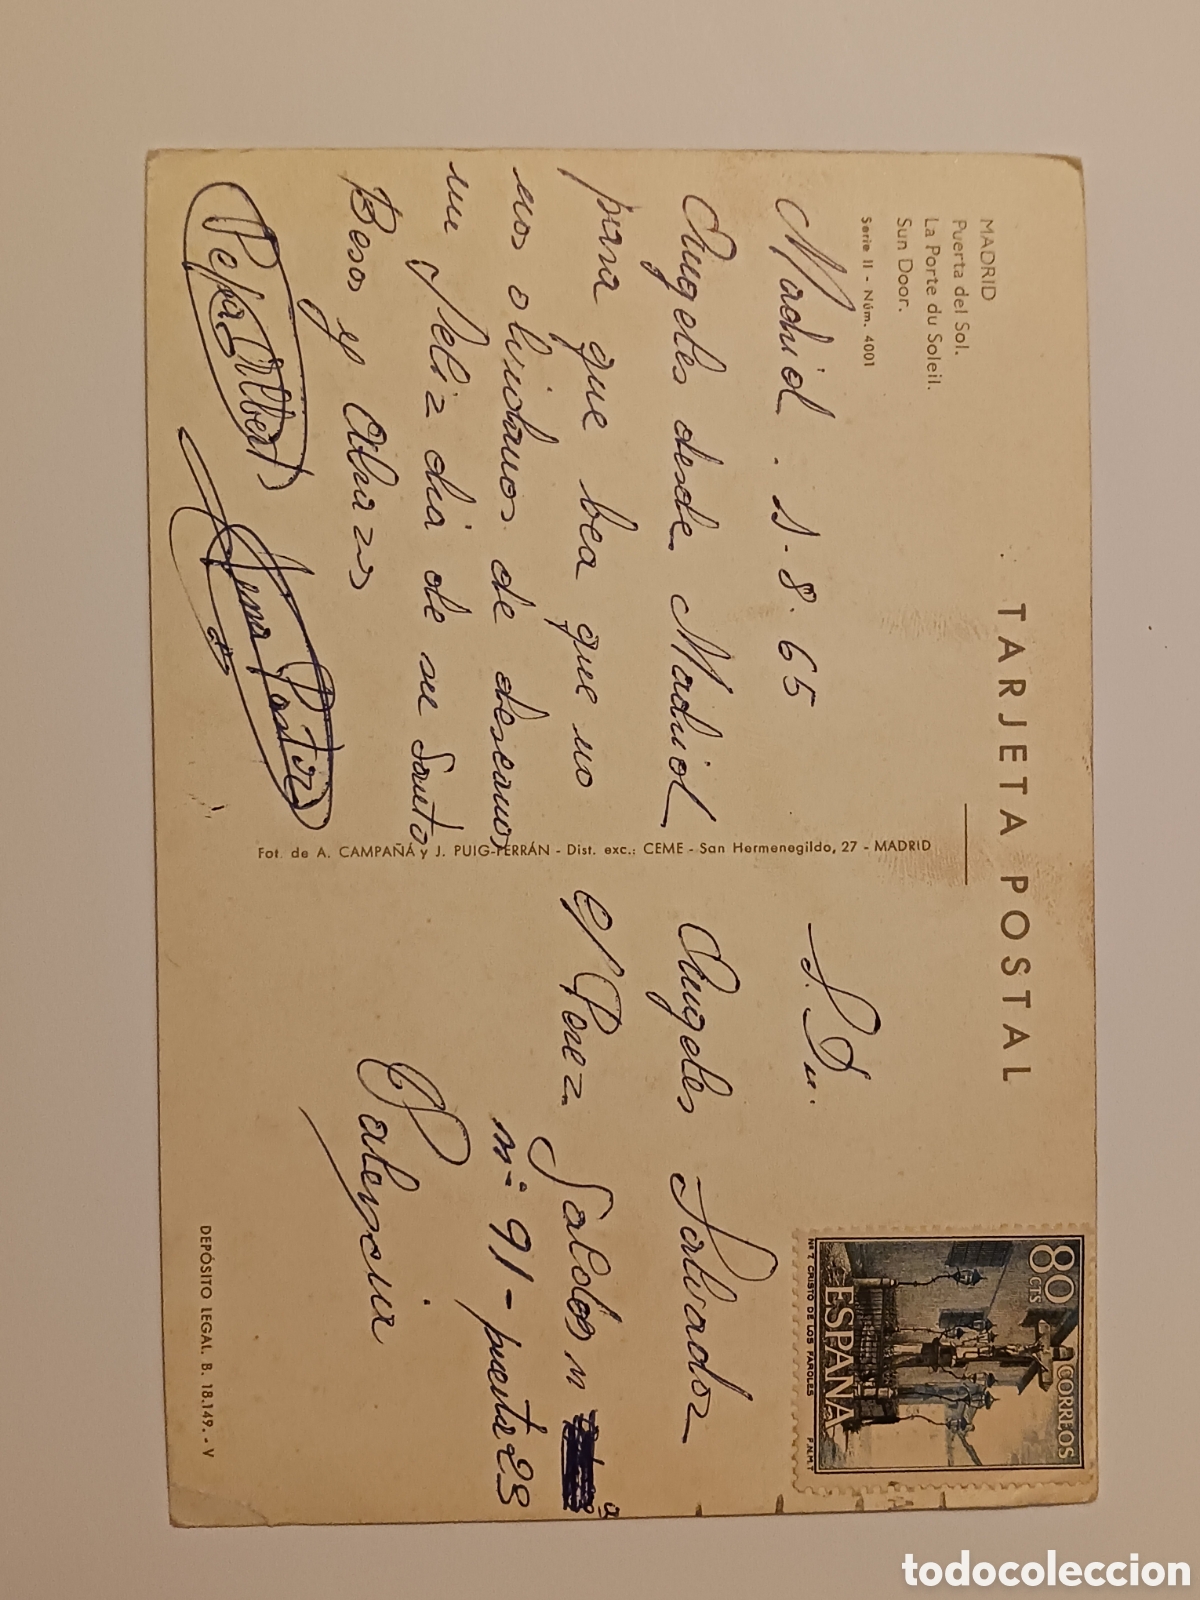 MADRID
Puerta del Sol.
La Porte du Soleil.
Sun Door.
Serie II - Núm. 4001
TARJETA POSTAL
Madrid . 1-8-65
Angeles desde Madrid
para que bea que no
nos olvidamos de desearnos
un feliz dia de su Santo
Besos y Abrazos
Pepa Albert
Pastor
Fot. de A. CAMPAÑÁ y J. PUIG-FERRÁN - Dist. exc.: CEME - San Hermenegildo, 27 - MADRID
Angeles Salvador
c/ Perez Galdos
nº 91 - puerta 23
Valencia
80 CTS
CORREOS
ESPAÑA
Nº 7. CRISTO DE LOS FAROLES
F.N.M.T
DEPÓSITO LEGAL. B. 18.149. - V
todocoleccion